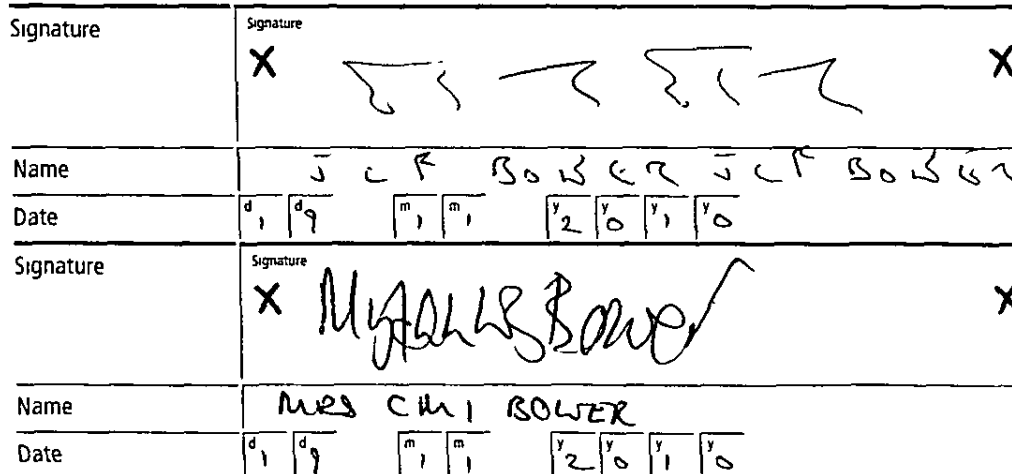 Signature Signature
X X
Name J C F BOWER J C F BOWER
Date d1 d9 m1 m1 y2 y0 y1 y0
Signature Signature
X Bower X
Name MRS C M I BOWER
Date d1 d9 m1 m1 y2 y0 y1 y0